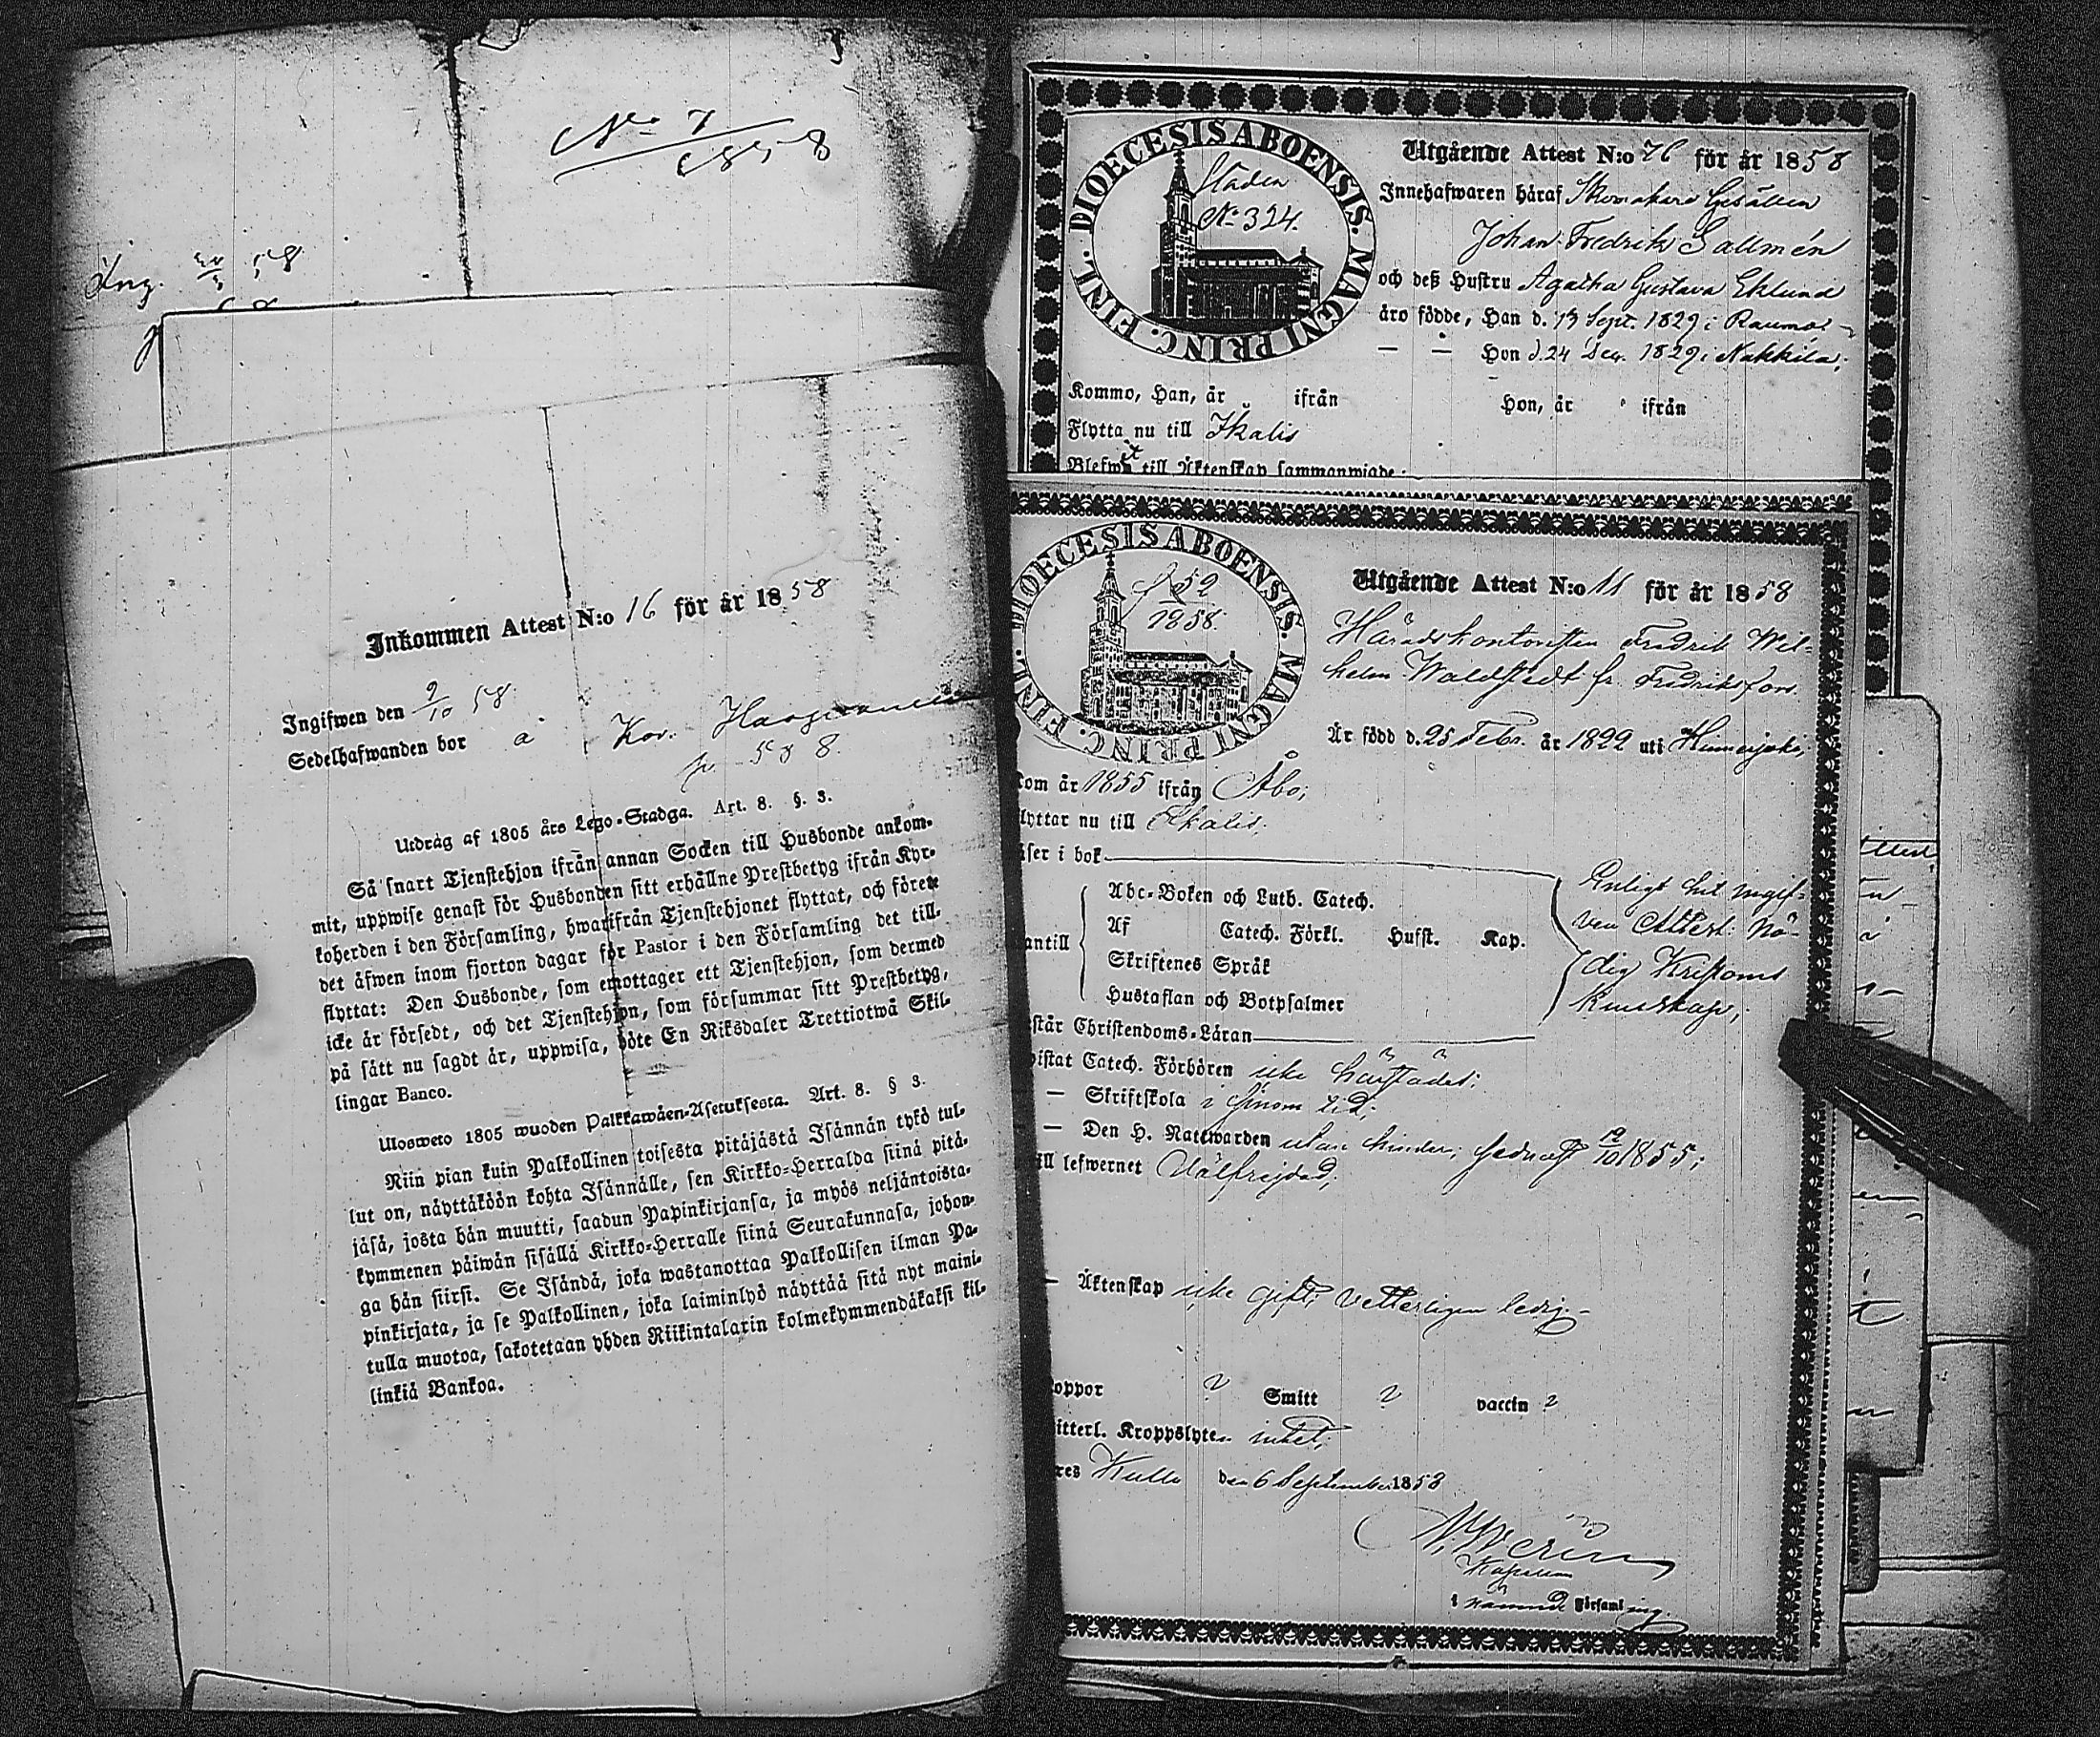 No 7
1858
Ing. 58
Inkommen Attest N:o 16 för år 1858
Ingifwen den 9/10 58.
Sedelhafwanden bor å Kov.
p. 508.
Utdrag af 1805 års Lego-Stadga. Art. 8. §. 3.
Så snart Tjenstehjon ifrån annan Socken till Husbonde ankom-
mit, uppwise genast för Husbonden sitt erhållne Prestbetyg ifrån Kyr-
koherden i den Församling, hwarifrån Tjenstehjonet flyttat, och förete
det äfwen inom fjorton dagar för Pastor i den Församling det till-
flyttat: Den Husbonde, som emottager ett Tjenstehjon, som dermed
icke är försedt, och det Tjenstehjon, som försummar sitt Prestbetyg,
på sätt nu sagdt är, uppwisa, böte En Riksdaler Trettiotwå Skil-
lingar Banco.
Ulosweto 1805 wuoden Palkkawäen-Asetuksesta. Art. 8. § 3.
Niin pian kuin Palkollinen toisesta pitäjästä Isännän tykö tul-
lut on, näyttäköön kohta Isännälle, sen Kirkko-Herralda siinä pitä-
jäsä, josta hän muutti, saadun Papinkirjansa, ja myös neljäntoista-
kymmenen päiwän sisällä Kirkko-Herralle siinä Seurakunnasa, johon-
ga hän siirsi. Se Isändä, joka wastanottaa Palkollisen ilman Pa-
pinkirjata, ja se Palkollinen, joka laiminlyö näyttää sitä nyt maini-
tulla muotoa, sakotetaan yhden Riikintalarin kolmekymmendäkaksi kil-
linkiä Bankoa.
DIOECESIS ABOENSIS. MAGNI PRINC. FINL.
Staden
No 324.
Utgående Attest N:o 76 för år 1858
Innehafwaren häraf Skomakare Gesällen
Johan Fredrik Sallmén
och deß Hustru Agatha Gustava Eklund
äro födde, Han d. 13 Sept. 1829 i Raumo
— — Hon d. 24 Dec. 1829 i Nakkila;
Kommo, Han, år ifrån Hon, år ifrån
Flytta nu till Ikalis
Blefwo till Äktenskap sammanwigde
DIOECESIS ABOENSIS. MAGNI PRINC. FINL.
52
1858.
Utgående Attest N:o 11 för år 1858
Häradskontoristen Fredrik Wil-
helm Waldstedt fr. Fredriksfors
Är född d. 25 Febr. år 1822 uti
kom år 1855 ifrån Åbo;
lyttar nu till Ikalis.
äser i bok
antill
Abc-Boken och Luth. Catech.
Af Catech. Förkl. Husst. Kap.
Skriftenes Språk
Hustaflan och Botpsalmer
Enligt hit ingif-
ven Attest: Nö-
dig Kristoms
kunskap;
står Christendoms-Läran
istat Catech. Förhören icke härstädes;
— Skriftskola i sinom tid;
— Den H. Nattwarden utan hinder; sednast 1855;
ill lefwernet Välfrejdad;
— Äktenskap icke gift; vetterligen ledig.
oppor ? Smitt ? vaccin ?
itterl. Kroppslyten intet;
res Kulla den 6 September 1858
Kapellan
i nämnde Församling.